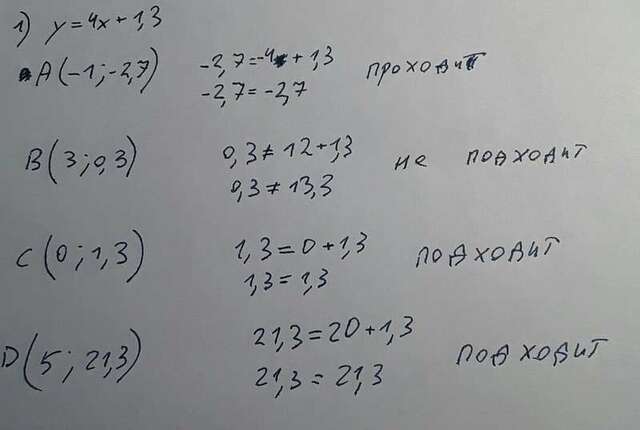 1) y=4x+1,3
A(-1;-2,7) -2,7=-4+1,3 проходит
-2,7=-2,7
B(3;0,3) 0,3≠12+1,3 не подходит
0,3≠13,3
C(0;1,3) 1,3=0+1,3 подходит
1,3=1,3
D(5;21,3) 21,3=20+1,3 подходит
21,3=21,3